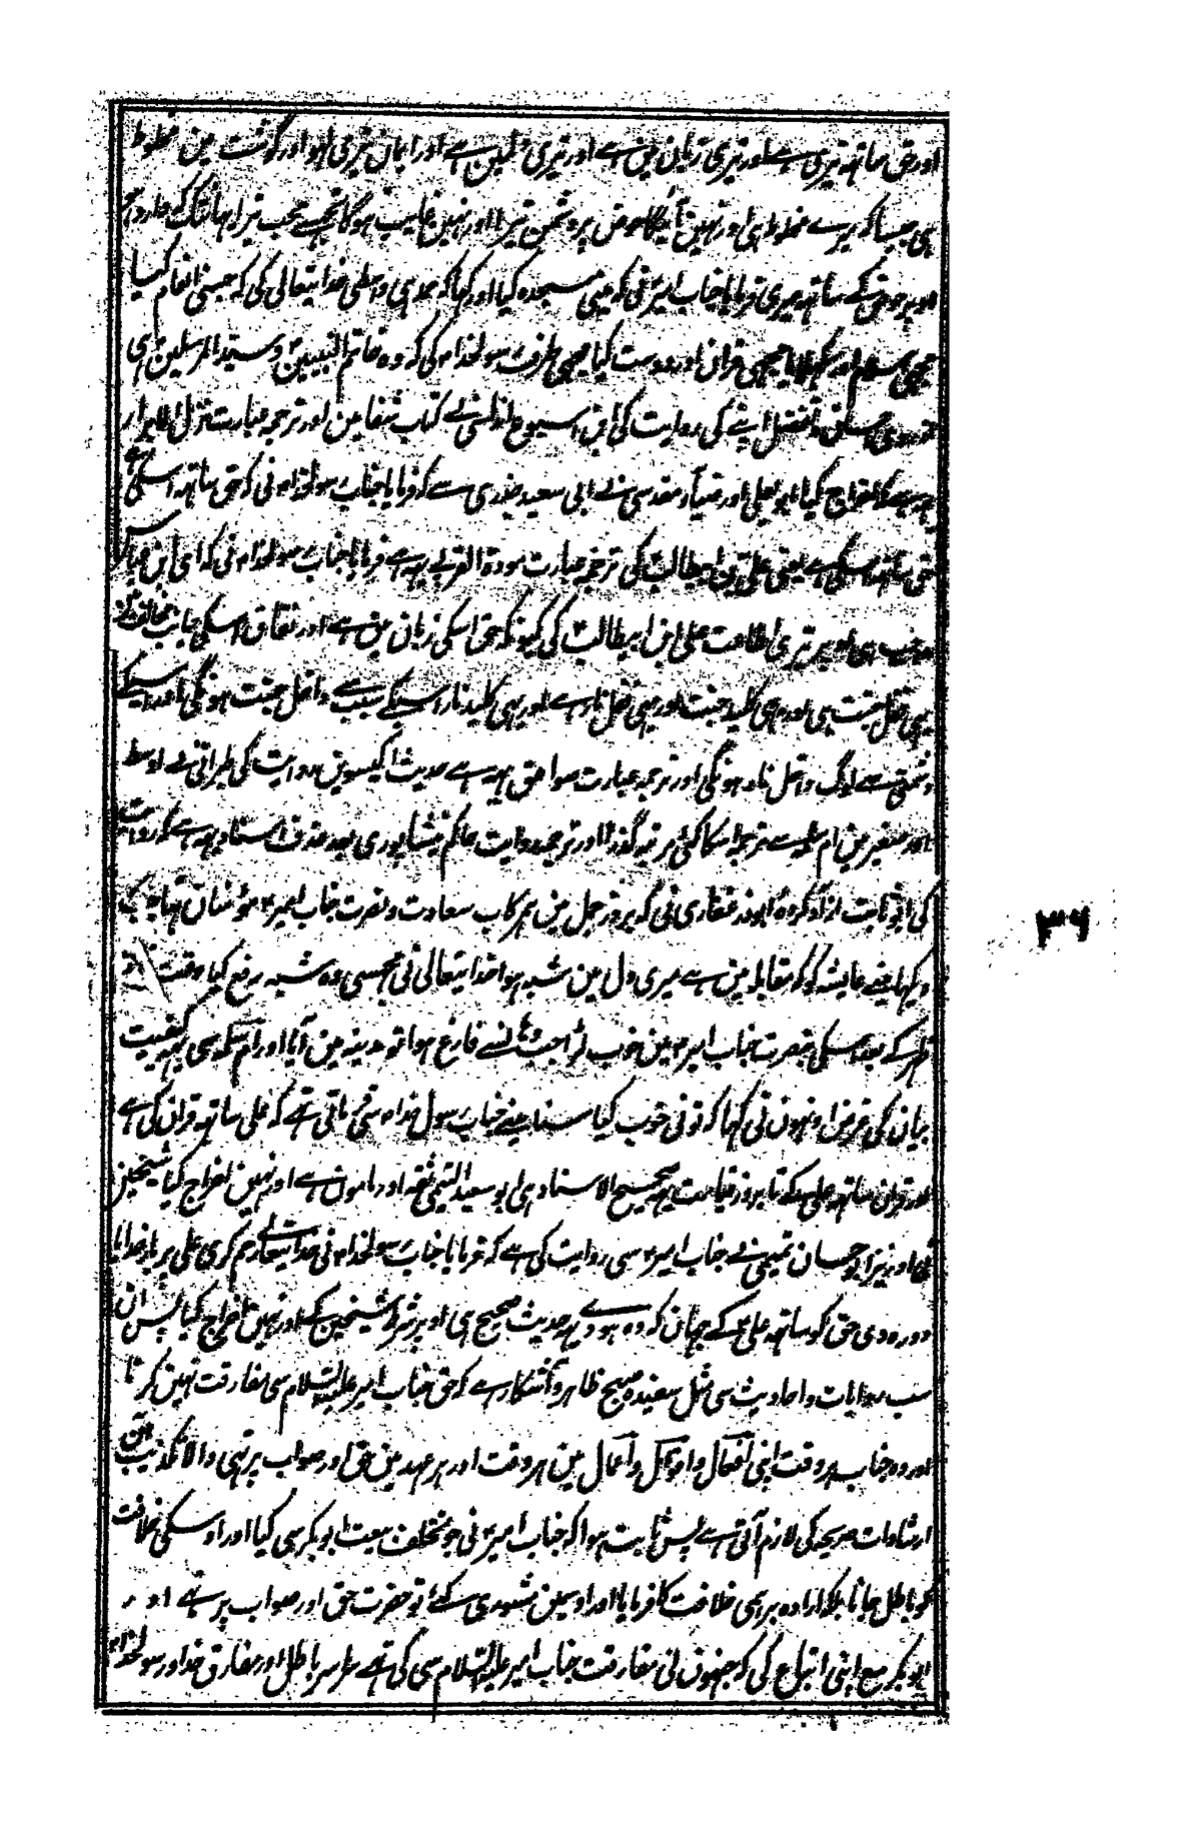 اور حق ساتھہ تیری ہے اور تیری زبان مین ہے اور تیری دلمین ہے اور ایمان تیری لہو اور گوشت مین مخلوط
ہی جیسا کہ میرے مخلوط ہی اور نہین آئیگا حوض پر دشمن تیرا اور نہین غایب ہوگا تجھسے محب تیرا یہانتک کہ وارد
ہو پر حوض کے ساتھہ میری فرمایا جناب امیر نی کہ مینی سجدہ کیا اور کہا کہ حمد ہی واسطی خدایتعالی کی کہ جسنی انعام کیا
مجھی اسلام اور سکہلایا مجھی قران اور دوست کیا مجھی طرف رسولخدا کی کہ وہ خاتم النبیین و سید المرسلین ہی
کی روایت کی ابن اسبوع اندلسی نے کتاب شفا مین اور ترجمہ عبارت نزل الابرار
یہہ ہے کہ اخراج کیا ابو یعلی اور ضیاء مقدسی نے ابی سعید خدری سے کہ فرمایا جناب رسولخدا نی کہ حق ساتھہ اسکی ہے
حق ساتھہ اسکی ہے یعنی علی بن ابیطالب کی ترجمہ عبارت مودة القربی یہہ ہے فرمایا جناب رسولخدا نی کہ ای ابن عباس
واجب ہی اوپر تیری اطاعت علی ابن ابیطالب کی کیونکہ حق اسکی زبان مین ہے اور نفاق اسکی جانب مخالف
یہی قفل جنت ہی اور یہی کلید جنت اور یہی قفل نار ہے اور یہی کلید نار اسیکے سبب سے داخل جنت ہونگی اور اسیکے
دشمنی سے لوگ داخل نار ہونگی اور ترجمہ عبارت صواعق یہہ ہے حدیث اکیسوین روایت کی طبرانی نے اوسط
اور صغیر مین ام سلمہ سے ترجمہ اسکا کئی مرتبہ گذرا اور ترجمہ روایت حاکم نیشاپوری بعد حذف اسناد یہہ ہے کہ روایت
کی ابو ثابت آزاد کردہ ابوذر غفاری نی کہ بروز جمل مین ہمرکاب سعادت و نصرت جناب امیر مؤمنان تہا جب
دیکہا مینے عایشہ کو کہ مقابلہ مین ہے میری دل مین شبہ ہوا خدایتعالی نی مجھسی وہ شبہ رفع کیا وقت
ظہر کے بعد اسکی بنصرت جناب امیر مین خوب لڑا جب قتال سے فارغ ہوا تو مدینہ مین آیا اور ام سلمہ سی یہہ کیفیت
بیان کی غرض اونہون نی کہا کہ تونی خوب کیا سنا مینے جناب رسول خدا سی فرماتی تہے کہ علی ساتھہ قران کی ہے
اور قران ساتھہ علی کے تا بروز قیامت یہہ صحیح الاسناد ہی ابو سعید التیمی ثقہ اور مامون ہے اور نہین اخراج کیا شیخین
نی اور نیز ابو حسان تیمی نے جناب امیر سی روایت کی ہے کہ فرمایا جناب رسولخدا نی خدایتعالی رحم کری علی پر بار خدایا
دورہ دی حق کو ساتھہ علی کے جہان کہ وہ ہووے یہہ حدیث صحیح ہی اوپر شرط شیخین کے اور نہین اخراج کیا پس ان
سب روایات و احادیث سی مثل سفیدہ صبح ظاہر و آشکار ہے کہ حق جناب امیر علیہ السلام سی مفارقت نہین کرتا
اور وہ جناب ہر وقت اپنی افعال و اقوال و اعمال مین ہر وقت اور ہر عہد مین حق اور صواب پر تہی والا تکذیب ان
ارشادات صریحہ کی لازم آتی ہے پس ثابت ہوا کہ جناب امیر نی جو تخلف بیعت ابو بکر سی کیا اور اوسکی خلافت
کو باطل جانا بلکہ ارادہ بر ہمی خلافت کا فرمایا اور اوسمین شوری کئے تو حضرت حق اور صواب پر تہے اور
ابو بکر مع اپنی اتباع کی کہ جنہون نی مفارقت جناب امیر علیہ السلام سی کی تہے سراسر باطل اور مفارق خدا و رسولخدا
۳۶